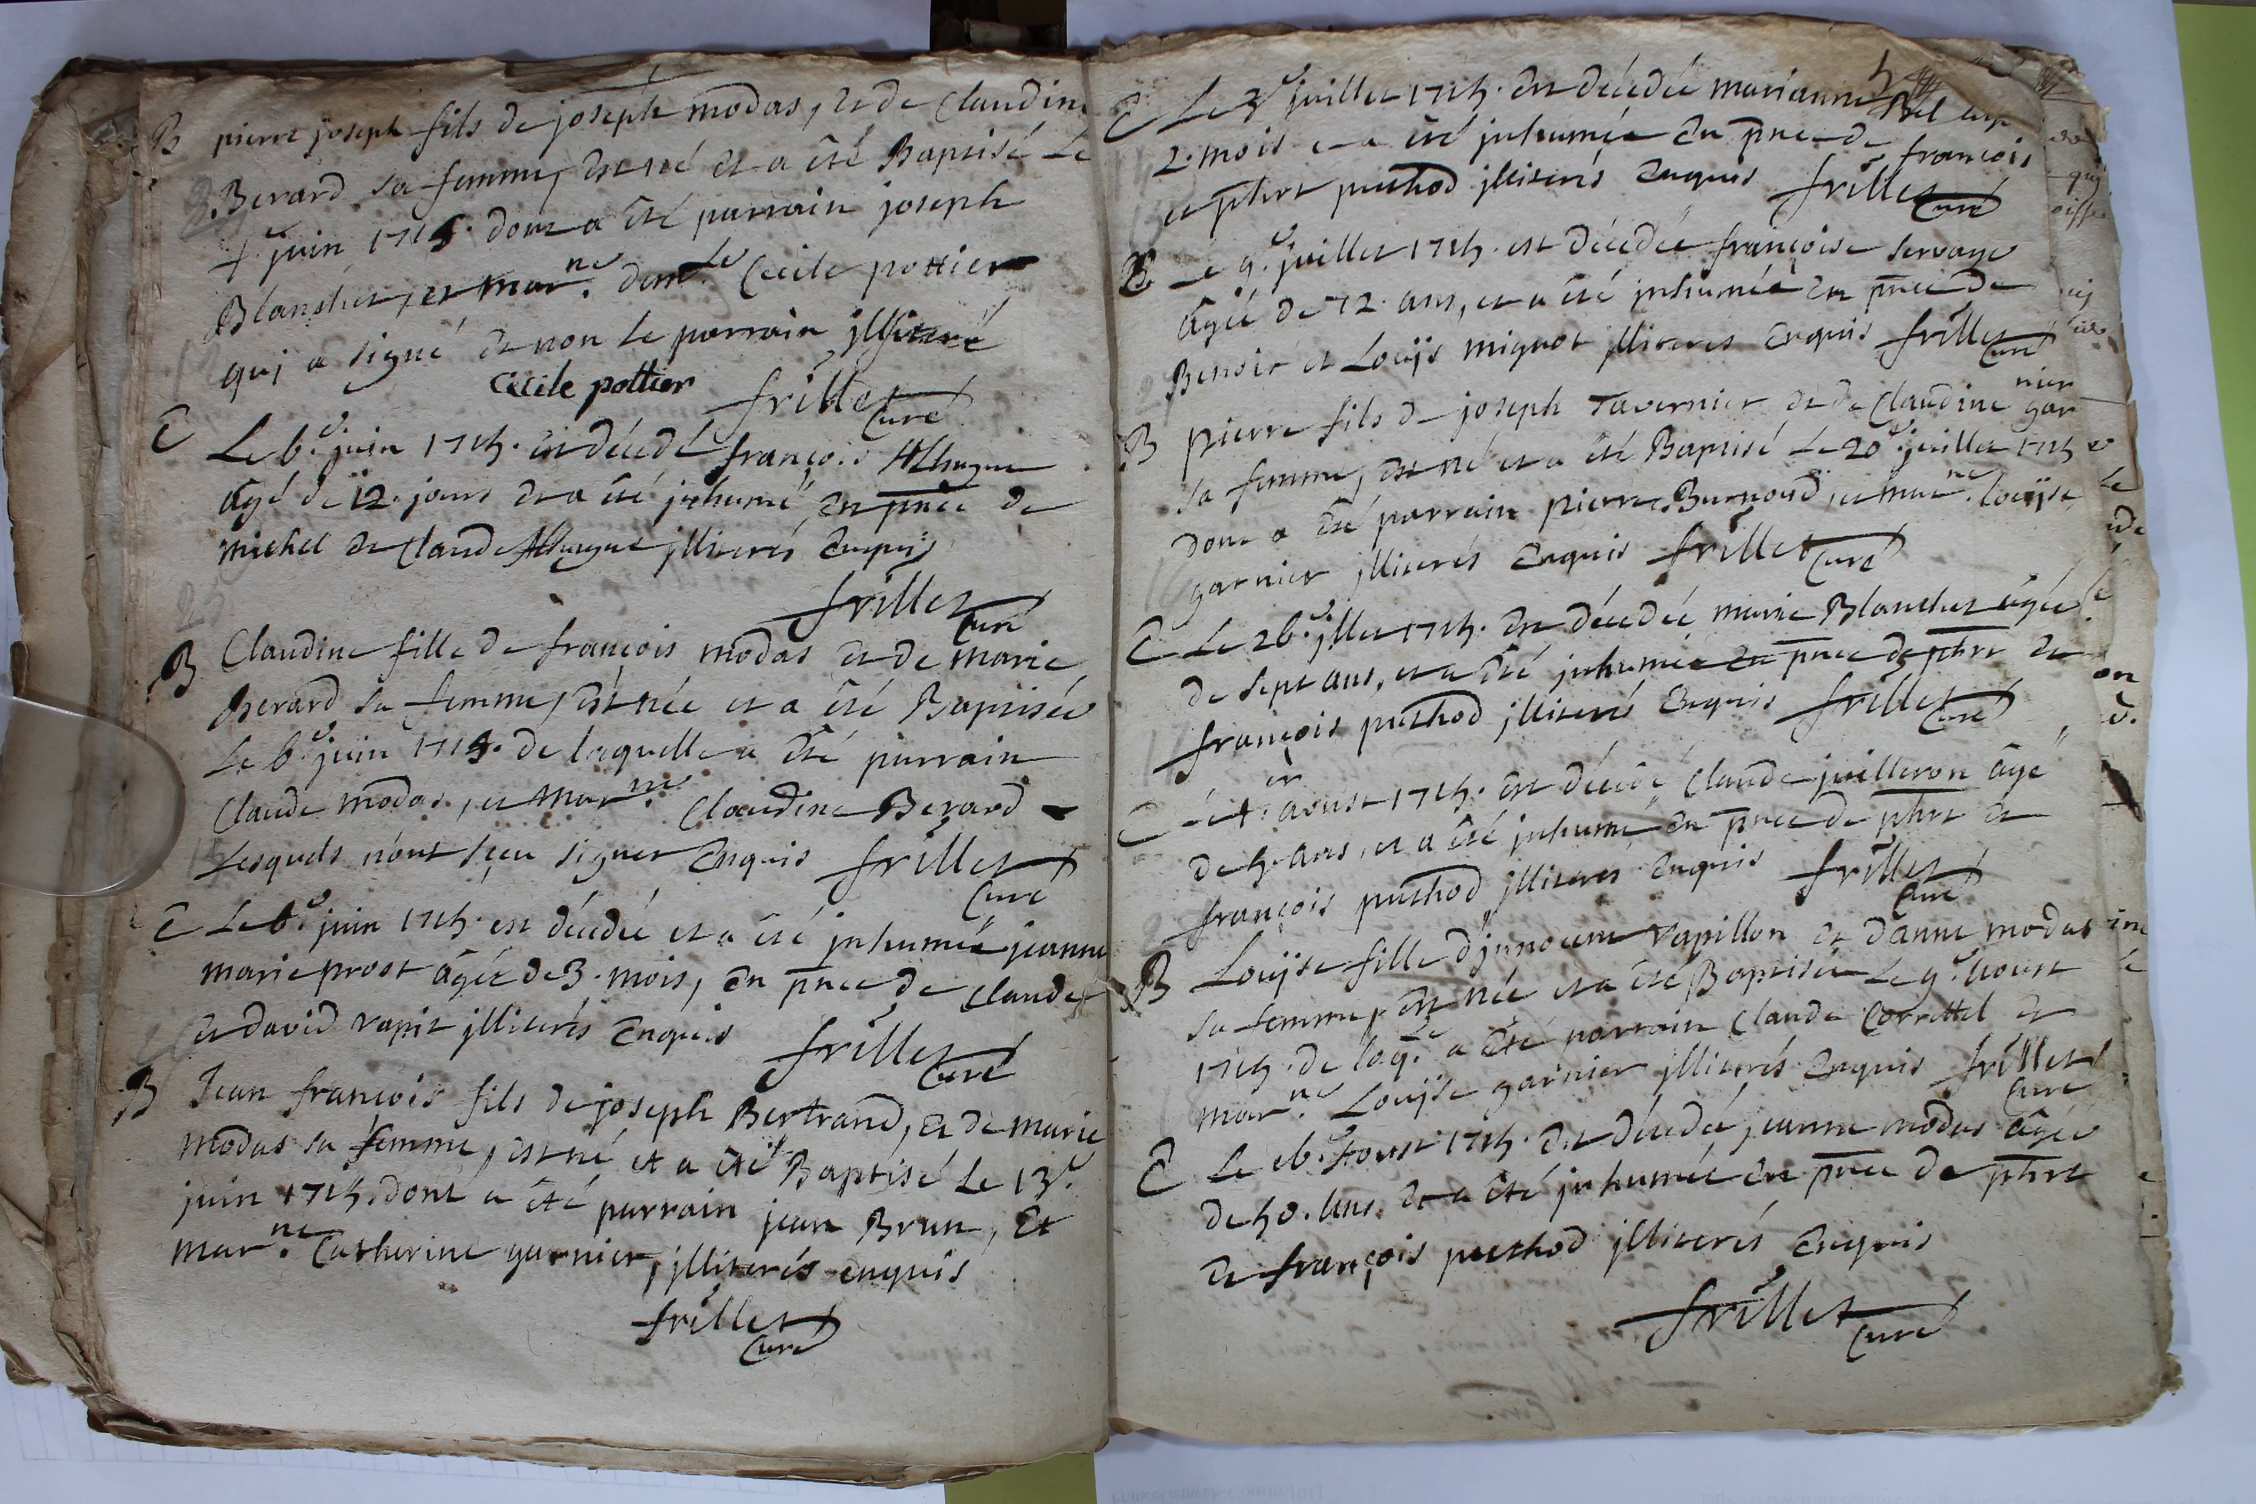 B pierre joseph fils de joseph modas, et de Claudine
Berard sa femme, est né et a été Baptisé Le
juin 1715. dont a été parrain joseph
Blanchet, et mar.ne dem.le Cecile pottier
qui a signé et non le parrain jlliteré
Cicile pottier frillet
Curé
C Le 6.e juin 1715. est décédé françois
âgé de 12. jours et a été jnhumé en pnce de
michel et Claude jlliterés enquis
frillet
Curé
B Claudine fille de françois modas et de marie
Berard sa femme, est née et a été Baptisée
Le 6.e juin 1715. de laquelle a été parrain
Claude modas, et mar.ne Claudine Berard
Lesquels n'ont sçeu signer enquis frillet
Curé
C Le 6.e juin 1715. est décédée et a été jnhumée jeanne
marie proot âgée de 3. mois, en pnce de Claude
et david vapit jlliterés enquis frillet
Curé
B Jean françois fils de joseph Bertrand, et de marie
modas sa femme, est né et a été Baptisé Le 13.e
juin 1715. dont a été parrain jean Brun, Et
mar.ne Catherine garnier, jlliterés enquis
frillet
Curé
5
C Le 3.e juillet 1715. est décédée marianne
2. mois et a été jnhumée en pnce de françois
et phrt puthod jlliterés enquis frillet
Curé
Le 9.e juillet 1715. est décédée françoise servage
âgée de 72. ans, et a été jnhumée en pnce de
Benoit et Loüys mignot jlliterés enquis frillet
Curé
B pierre fils de joseph Tavernier et de Claudine gar
nier
sa femme, est né et a été Baptisé Le 20.e juillet 1715
dont a été parrain pierre Burnoud, et mar.ne loüyse
garnier jlliterés enquis frillet
Curé
C Le 26.e jllet 1715. est décédée marie Blanchet âgée
de sept ans, et a été jnhumée en pnce de phrt et
françois puthod jlliterés enquis frillet
Curé
C Le 1.er aoust 1715. est décédé Claude juilleron âgé
de 5. ans, et a été jnhumé en pnce de phrt et
françois puthod jlliterés enquis frillet
Curé
B Loüyse fille d'jnnocent vapillon et d'anne modas
sa femme, est née et a été Baptisée Le 9.e Aoust
1715. de laq.le a été parrain Claude Correttel et
mar.ne Loüyse garnier jlliterés enquis frillet
Curé
C Le Aoust 1715. est décédée jeanne modas âgée
de 50. Ans et a été jnhumée en pnce de phrt
et françois puthod jlliterés enquis
frillet
Curé